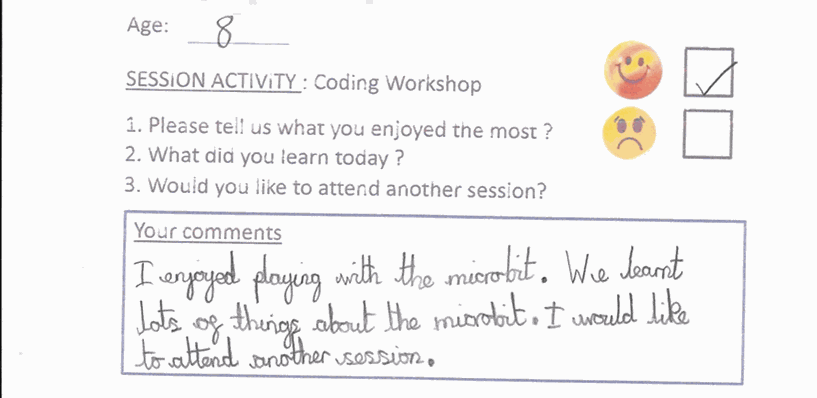 Age: 8
SESSION ACTIVITY : Coding Workshop
1. Please tell us what you enjoyed the most ?
2. What did you learn today ?
3. Would you like to attend another session?
Your comments
I enjoyed playing with the microbit. We learnt
lots of things about the microbit. I would like
to attend another session.